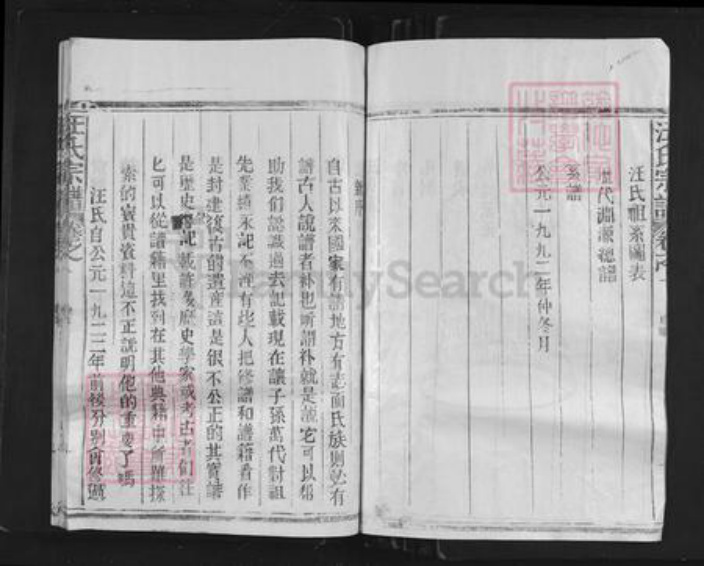 汪氏宗譜
汪氏祖系圖表
歷代淵源總譜
系譜
公元一九九二年仲冬月
自古以來國家有誌地方有志而氏族則必有
譜古人說譜者补也所謂补就是說它可以帮
助我们認識过去記載現在讓子孫萬代對祖
先業績永記不
有些人把修譜和譜籍看作
是封建復古的遺産這是很不公正的其實譜
是歷史
記載許多歷史學家或考古者们往
匕可以從譜籍里找到在其他典籍中
難探
索的寶貴資料這不正說明他的重要了嗎
汪氏自公元一九二二年前後分别
修過
汪氏宗譜
FamilySearch